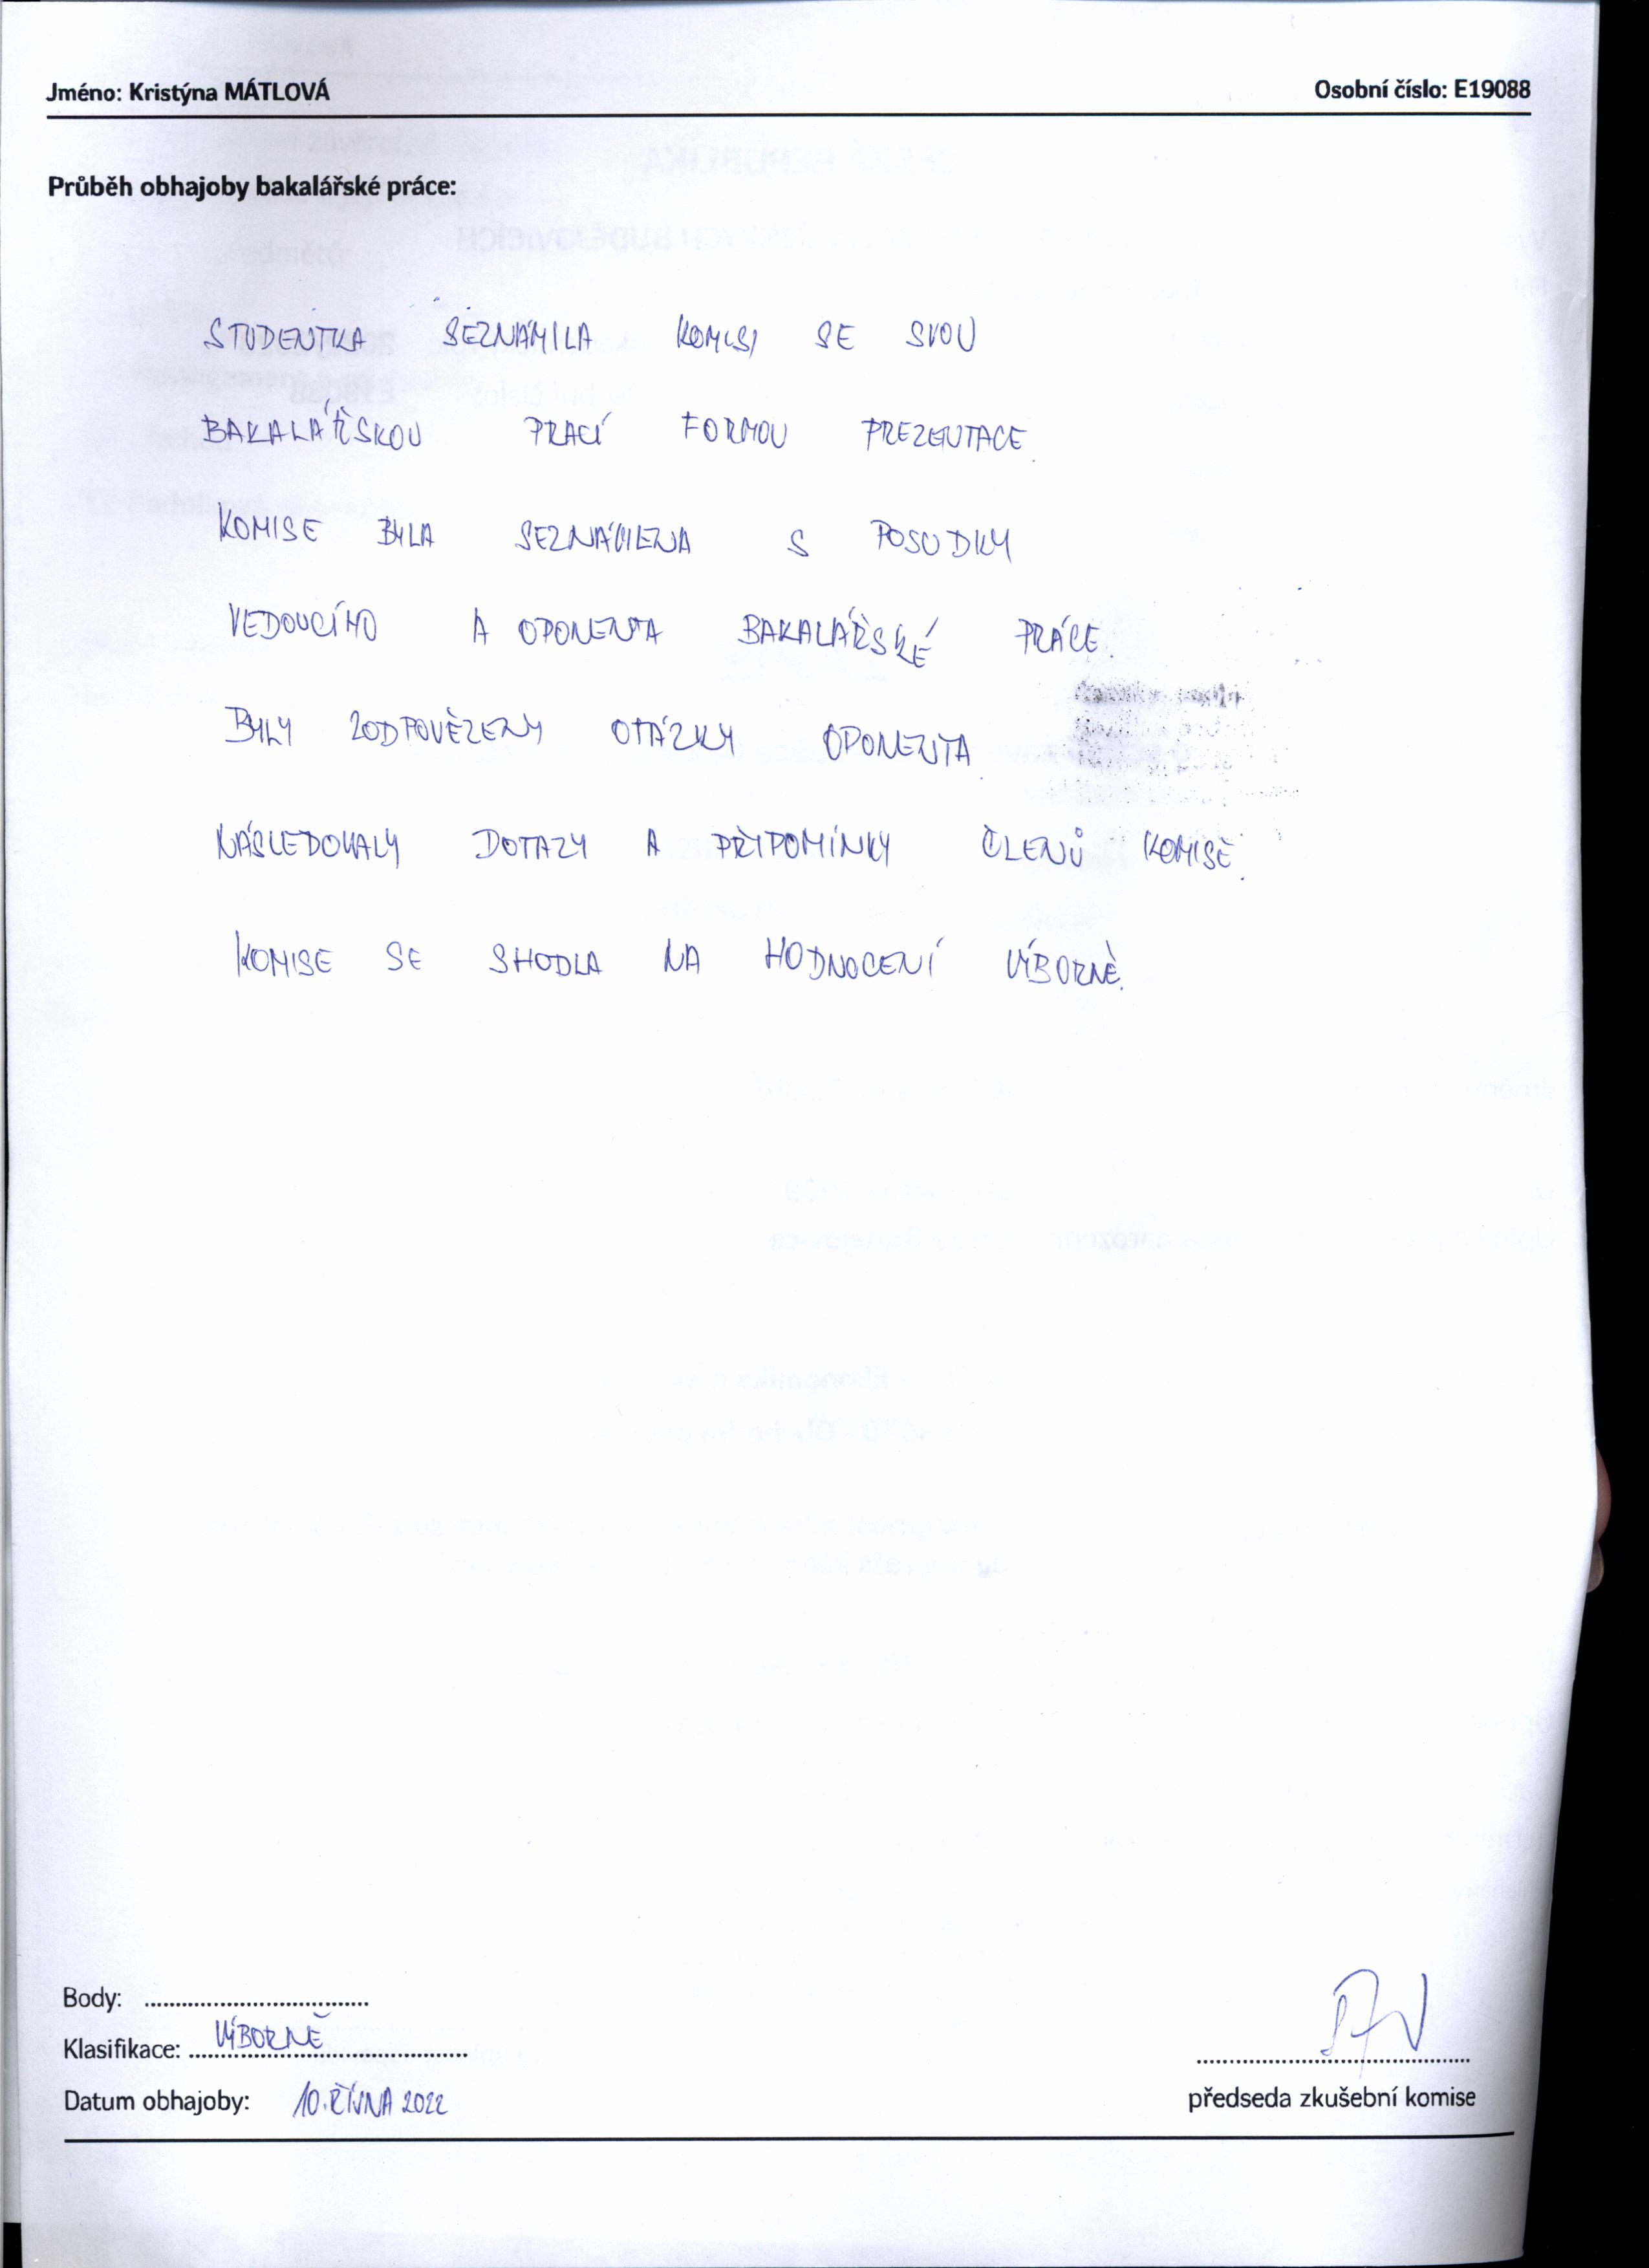 Jméno: Kristýna MÁTLOVÁ Osobní číslo: E19088
Průběh obhajoby bakalářské práce:
STUDENTKA SEZNÁMILA KOMISI SE SVOU
BAKALÁŘSKOU PRACÍ FORMOU PREZENTACE.
KOMISE BYLA SEZNÁMENA S POSUDKY
VEDOUCÍHO A OPONENTA BAKALÁŘSKÉ PRÁCE.
BYLY ZODPOVĚZENY OTÁZKY OPONENTA.
NÁSLEDOVALY DOTAZY A PŘIPOMÍNKY ČLENŮ KOMISE.
KOMISE SE SHODLA NA HODNOCENÍ VÝBORNĚ.
Body: ....................................
Klasifikace: VÝBORNĚ
Datum obhajoby: 10. ŘÍJNA 2022
předseda zkušební komise